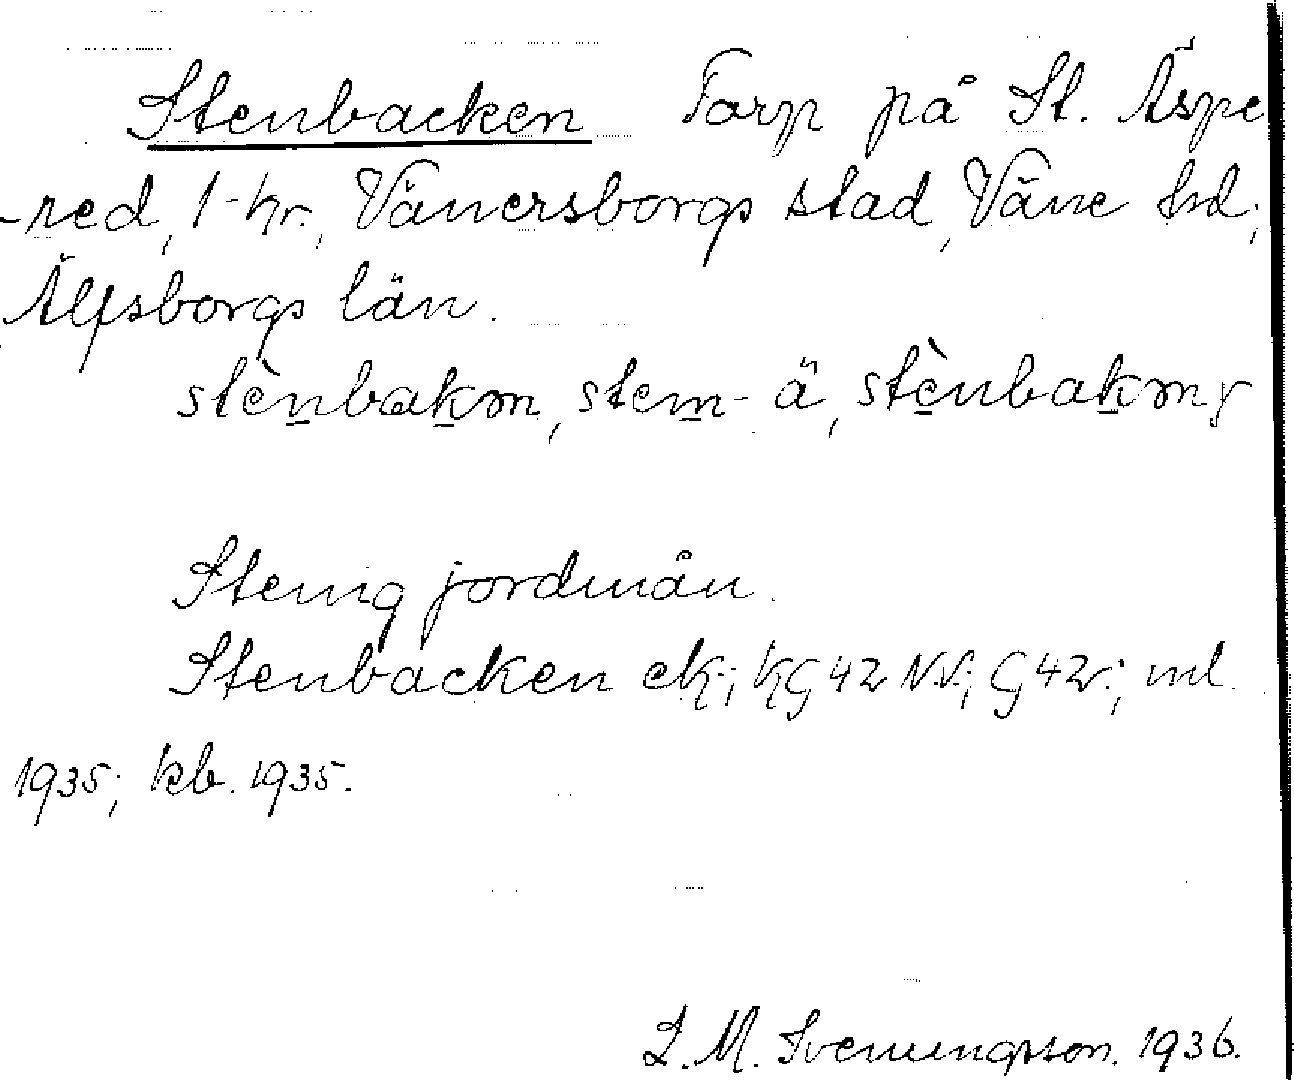 Stenbacken Torp på St. Äspe
-red, 1-hr., Vänersborgs stad, Väne hd;
Älfsborgs län.
stènbakən, stem- ä, stènbakən
Stenig jordmån.
Stenbacken ek.; KG 42 NV.; G 42v.; ml
1935; kb. 1935.
L. M. Svenungsson. 1936.